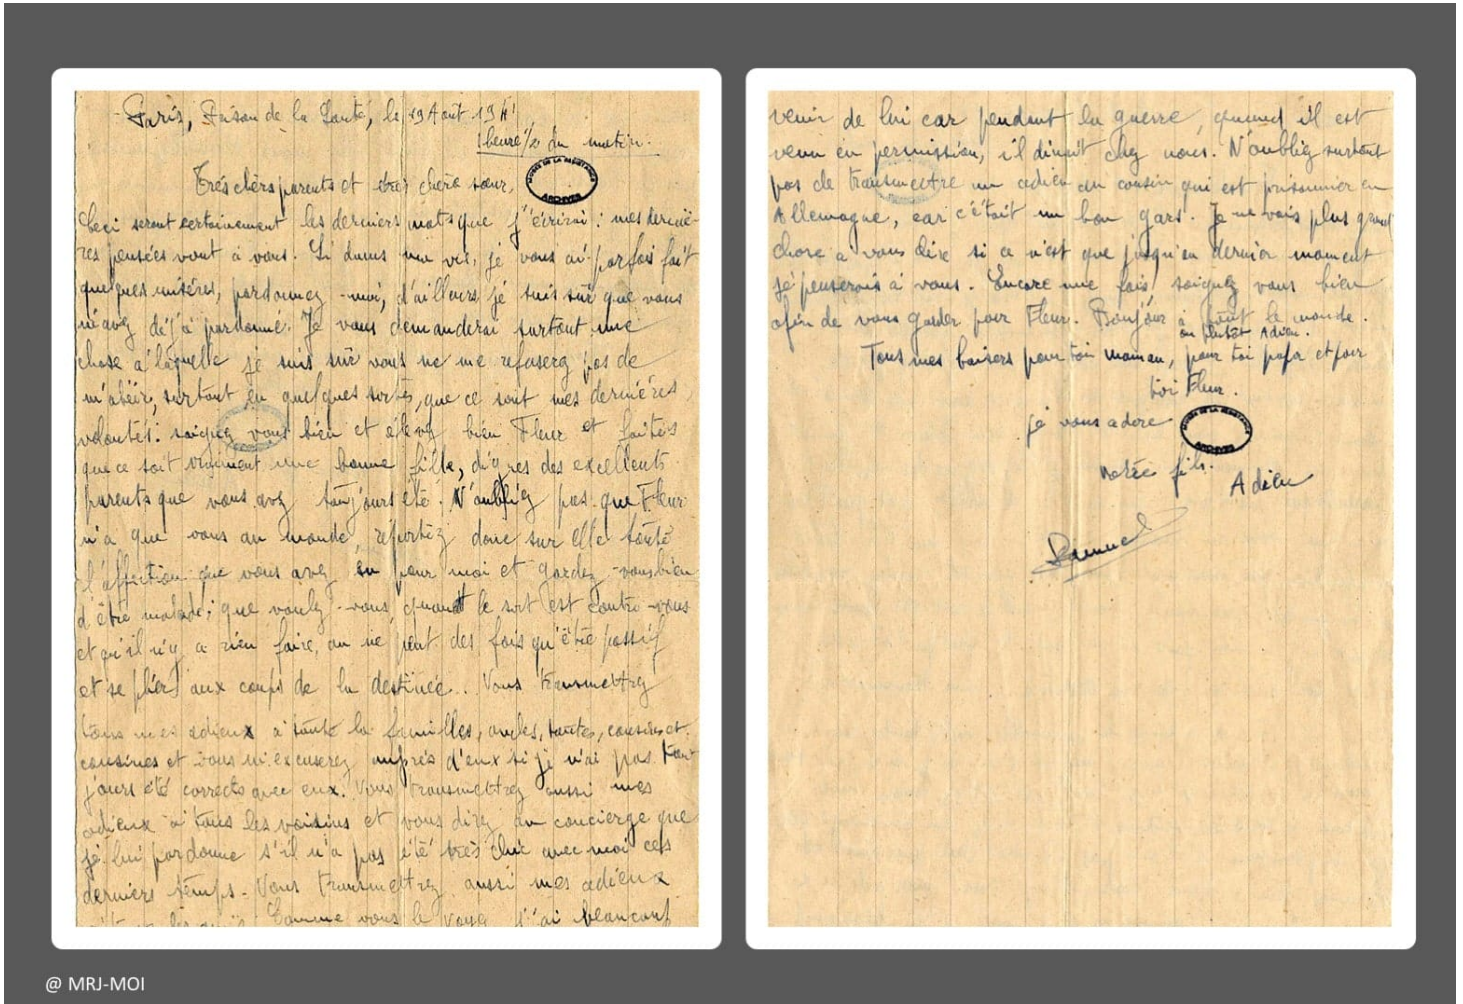 Paris, Prison de la Santé, le 19 Août 1941
1 heure 1/2 du matin.
Très chers parents et très chère sœur,
MUSEE DE LA RESISTANCE
ARCHIVES
Ceci seront certainement les derniers mots que j'écrirai : mes derniè-
res pensées vont à vous. Si dans ma vie, je vous ai parfois fait
quelques misères, pardonnez-moi, d'ailleurs je suis sûr que vous
m'avez déjà pardonné. Je vous demanderai surtout une
chose à laquelle je suis sûr vous ne me refuserez pas de
m'obéir, surtout en quelques sortes, que ce sont mes dernières
volontés : soignez vous bien et élevez bien Fleur et faites
que ce soit vraiment une bonne fille, dignes des excellents
parents que vous avez toujours été. N'oubliez pas que Fleur
n'a que vous au monde, reportez donc sur elle toute
l'affection que vous avez eu pour moi et gardez-vous bien
d'être malade ; que voulez-vous, quand le sort est contre-vous
et qu'il n'y a rien faire, on ne peut des fois qu'être passif
et se plier aux coups de la destinée.. Vous transmettrez
tous mes adieux à toute la familles, oncles, tantes, cousins et
cousines et vous m'excuserez auprès d'eux si je n'ai pas tou-
jours été corrects avec eux. Vous transmettrez aussi mes
adieux à tous les voisins et vous direz au concierge que
je lui pardonne s'il n'a pas été très chic avec moi ces
derniers temps. Vous transmettrez aussi mes adieux
Comme vous le voyez j'ai beaucoup
venir de lui car pendant la guerre, quand il est
venu en permission, il dinait chez nous. N'oubliez surtout
pas de transmettre un adieu au cousin qui est prisonnier en
Allemagne, car c'était un bon gars. Je ne vois plus grand
chose à vous dire si ce n'est que jusqu'au dernier moment
je penserais à vous. Encore une fois soignez vous bien
afin de vous garder pour Fleur. Bonjour à tout le monde.
ou plutôt Adieu.
Tous mes baisers pour toi maman, pour toi papa et pour
toi Fleur.
je vous adore
MUSEE DE LA RESISTANCE
ARCHIVES
votre fils.
Adieu
Samuel
@ MRJ-MOI